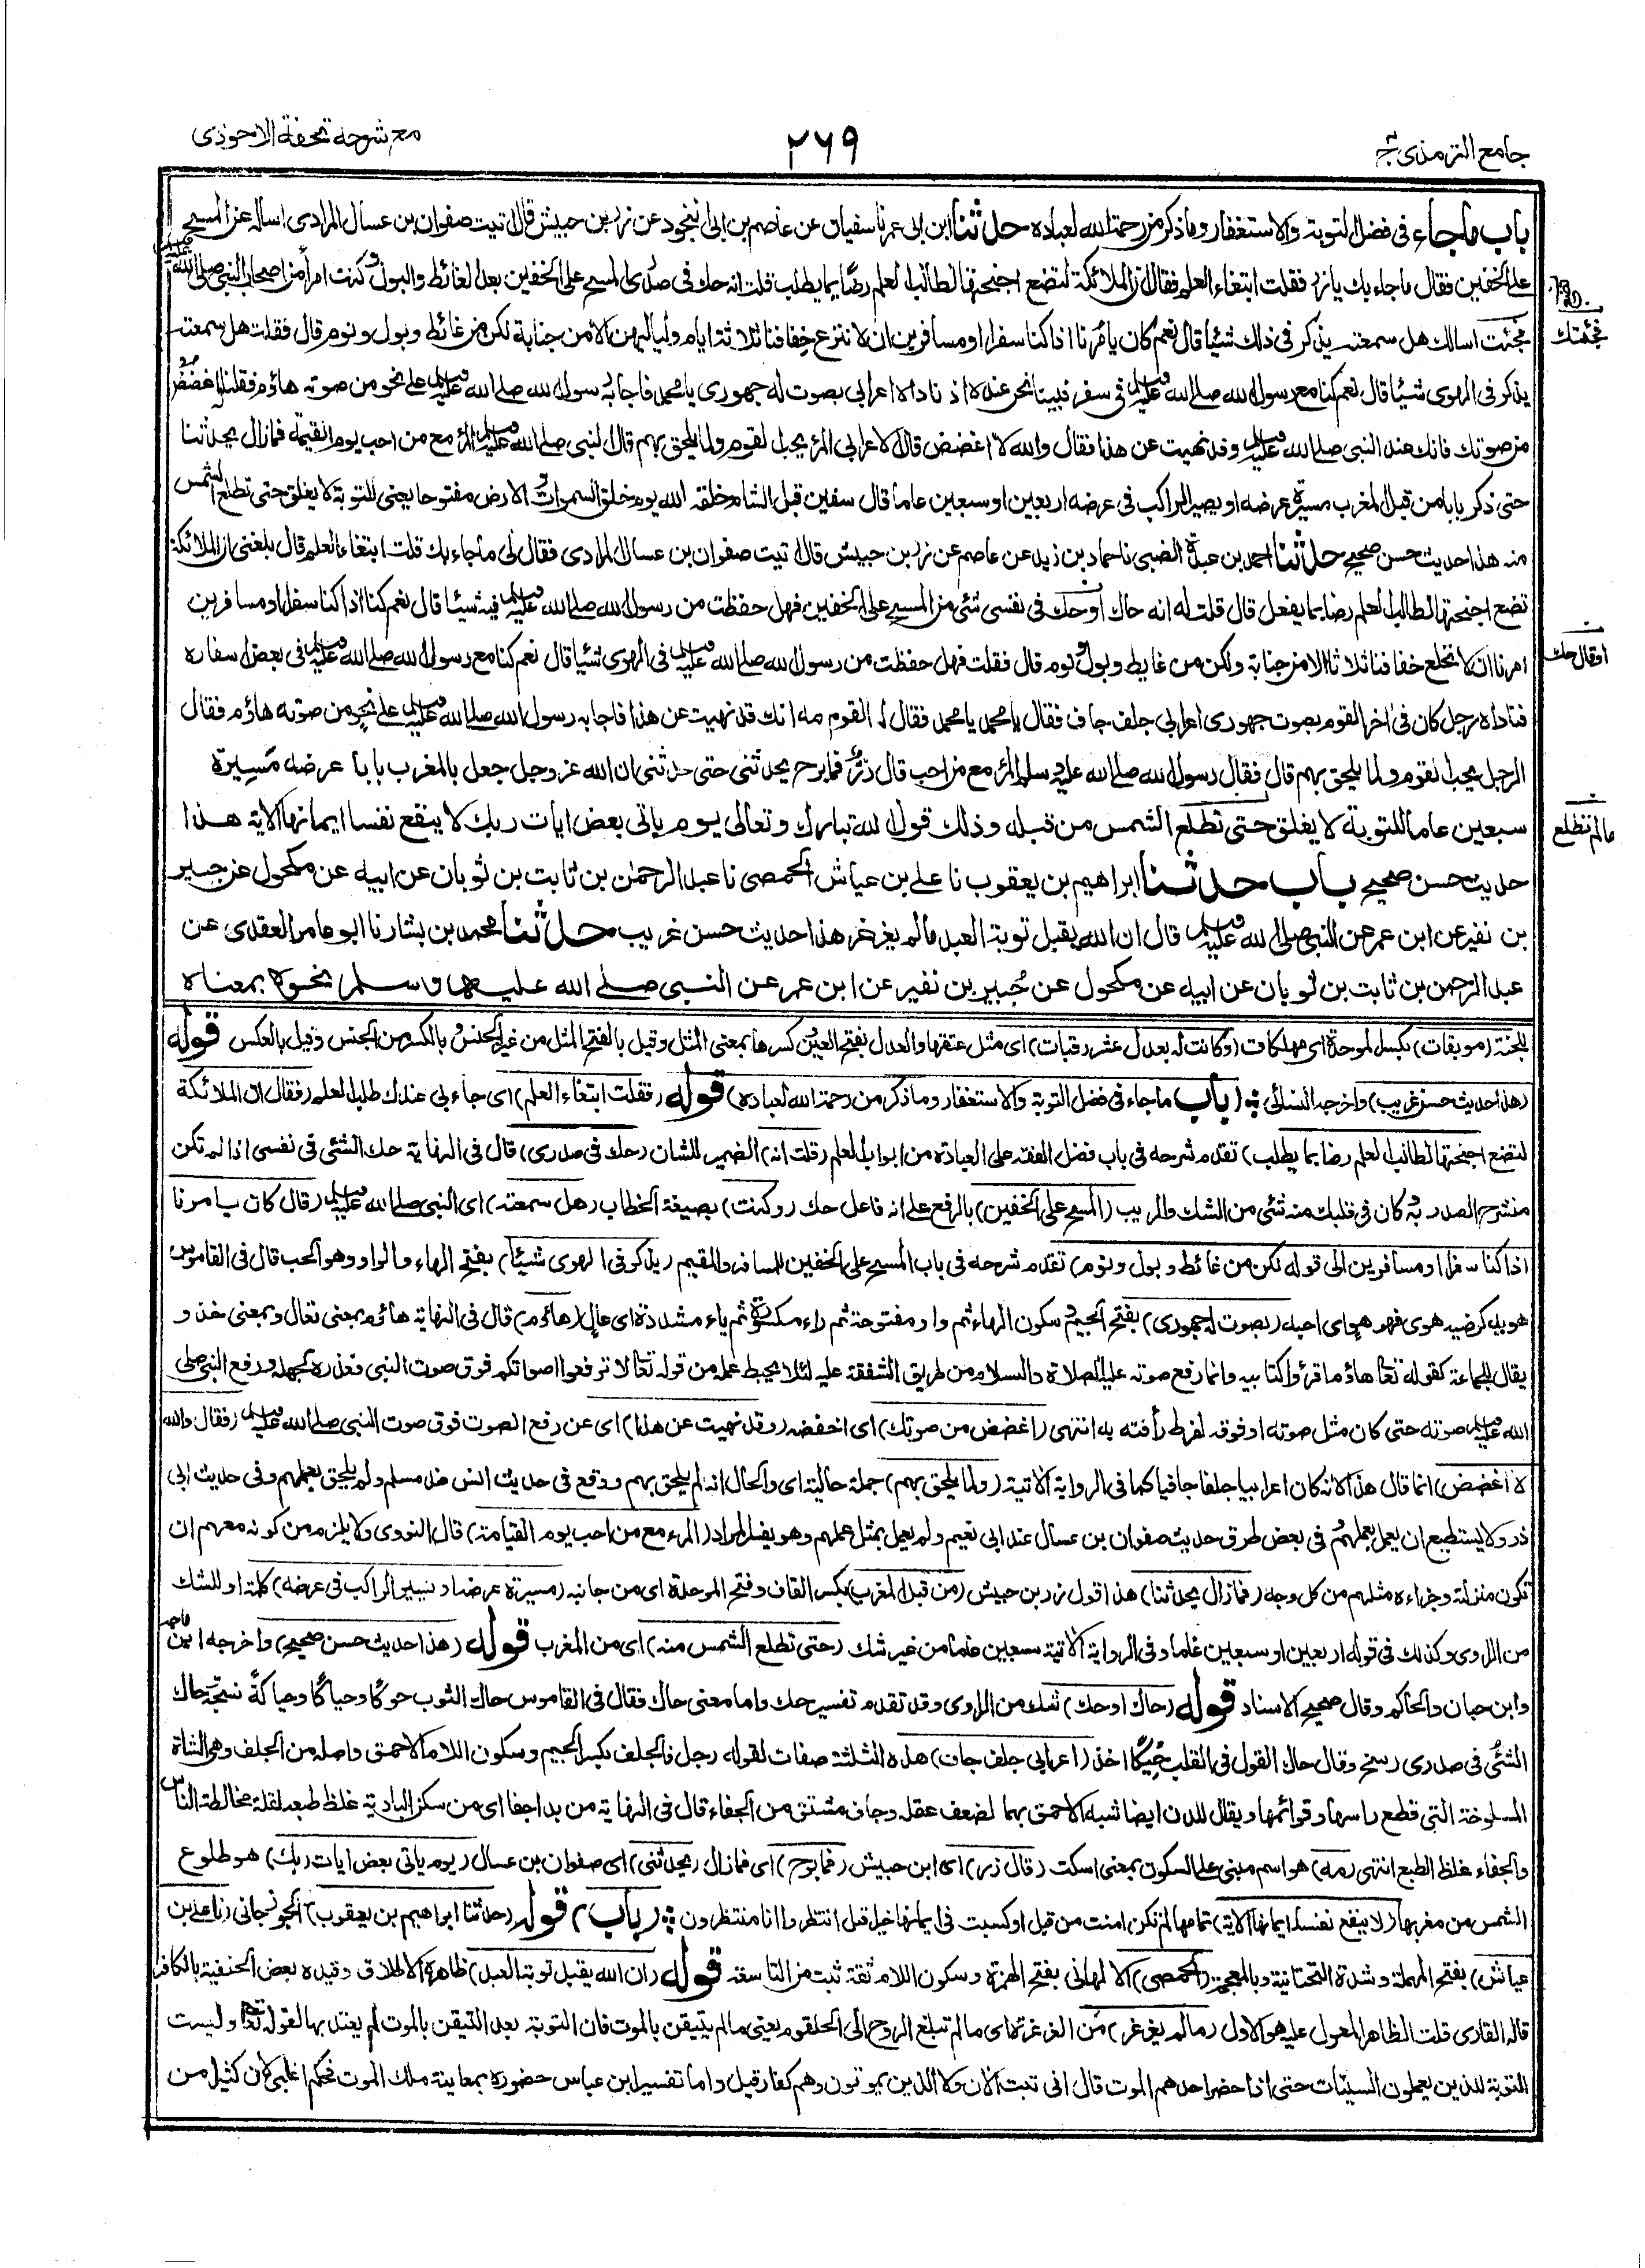 جامع الترمذى ج ٣
٢٦٩
مع شرحه تحفة الاحوذى
باب ماجاء فى فضل التوبة والاستغفار وماذكر من رحمة الله لعباده حدثنا ابن ابى عمر نا سفيان عن عاصم بن ابى النجود عن زر بن حبيش قال اتيت صفوان بن عسال المرادى اساله عن المسح
على الخفين فقال ماجاء بك يا زر فقلت ابتغاء العلم فقال ان الملائكة لتضع اجنحتها لطالب العلم رضًا بما يطلب قلت انه حك فى صدرى المسح على الخفين بعد الغائط والبول وكنت امرأ من اصحاب النبى صلى الله عليه وسلم
فجئت اسالك هل سمعته يذكر فى ذلك شيئا قال نعم كان يأمرنا اذا كنا سفرا او مسافرين ان لا ننزع خفافنا ثلاثة ايام ولياليهن الا من جنابة لكن من غائط وبول ونوم قال فقلت هل سمعته
يذكر فى الهوى شيئا قال نعم كنا مع رسول الله صلى الله عليه وسلم فى سفر فبينا نحن عنده اذ ناداه اعرابى بصوت له جهورى يا محمد فاجابه رسول الله صلى الله عليه وسلم على نحو من صوته هاؤم فقلنا له اغضض
من صوتك فانك عند النبى صلى الله عليه وسلم وقد نهيت عن هذا فقال والله لا اغضض قال الاعرابى المرء يحب القوم ولما يلحق بهم قال النبى صلى الله عليه وسلم المرء مع من احب يوم القيمة فمازال يحدثنا
حتى ذكر بابا من قبل المغرب مسيرة عرضه او يسير الراكب فى عرضه اربعين او سبعين عاما قال سفين قبل الشام خلقه الله يوم خلق السموات والارض مفتوحا يعنى للتوبة لا يغلق حتى تطلع الشمس
منه هذا حديث حسن صحيح حدثنا احمد بن عبدة الضبى نا حماد بن زيد عن عاصم عن زر بن حبيش قال اتيت صفوان بن عسال المرادى فقال لى ماجاء بك قلت ابتغاء العلم قال بلغنى ان الملائكة
تضع اجنحتها لطالب العلم رضا بما يفعل قال قلت له انه حاك او حك فى نفسى شئى من المسح على الخفين فهل حفظت من رسول الله صلى الله عليه وسلم فيه شيئا قال نعم كنا اذا كنا سفرا او مسافرين
امرنا ان لا نخلع خفافنا ثلاثا الا من جنابة ولكن من غايط وبول ونوم قال فقلت فهل حفظت من رسول الله صلى الله عليه وسلم فى الهوى شيئا قال نعم كنا مع رسول الله صلى الله عليه وسلم فى بعض اسفاره
فناداه رجل كان فى اخر القوم بصوت جهورى اعرابى جلف جاف فقال يا محمد يا محمد فقال له القوم مه انك قد نهيت عن هذا فاجابه رسول الله صلى الله عليه وسلم على نحو من صوته هاؤم فقال
الرجل يحب القوم ولما يلحق بهم قال فقال رسول الله صلى الله عليه وسلم المرء مع من احب قال زر فما برح يحدثنى حتى حدثنى ان الله عز وجل جعل بالمغرب بابا عرضه مسيرة
سبعين عاما للتوبة لا يغلق حتى تطلع الشمس من قبله وذلك قول الله تبارك وتعالى يوم ياتى بعض ايات ربك لا ينفع نفسا ايمانها الاية هذا
حديث حسن صحيح باب حدثنا ابراهيم بن يعقوب نا على بن عياش الحمصى نا عبد الرحمن بن ثابت بن ثوبان عن ابيه عن مكحول عن جبير
بن نفير عن ابن عمر عن النبى صلى الله عليه وسلم قال ان الله يقبل توبة العبد مالم يغرغر هذا حديث حسن غريب حدثنا محمد بن بشار نا ابو عامر العقدى عن
عبد الرحمن بن ثابت بن ثوبان عن ابيه عن مكحول عن جبير بن نفير عن ابن عمر عن النبى صلى الله عليه وسلم نحوه بمعناه
فجئتك
او قال حك
مالم تطلع
للجنة (موبقات) بكسر الموحدة اى مهلكات (وكانت له بعدل عشر رقبات) اى مثل عتقها والعدل بفتح العين وكسرها بمعنى المثل وقيل بالفتح المثل من غير الجنس وبالكسر من الجنس وقيل بالعكس قوله
(هذا حديث حسن غريب) واخرجه النسائى (باب ماجاء فى فضل التوبة والاستغفار وما ذكر من رحمة الله لعباده) قوله (فقلت ابتغاء العلم) اى جاء بى عندك طلب العلم (فقال ان الملائكة
لتضع اجنحتها لطالب العلم رضا بما يطلب) تقدم شرحه فى باب فضل الفقه على العبادة من ابواب العلم (قلت انه) الضمير للشان (حك فى صدرى) قال فى النهاية حك الشئى فى نفسى اذا لم تكن
منشرح الصدر به وكان فى قلبك منه شئى من الشك والريب (المسح على الخفين) بالرفع على انه فاعل حك (وكنت) بصيغة الخطاب (هل سمعته) اى النبى صلى الله عليه وسلم (قال كان يامرنا
اذا كنا سفرا او مسافرين الى قوله لكن من غائط وبول ونوم) تقدم شرحه فى باب المسح على الخفين للمسافر والمقيم (يذكر فى الهوى شيئا) بفتح الهاء والواو وهو الحب قال فى القاموس
هويه كرضيه هوى فهو هو اى احبه (بصوت له جهورى) بفتح الجيم وسكون الهاء ثم واو مفتوحة ثم راء مكسورة ثم ياء مشددة اى عال (هاؤم) قال فى النهاية هاؤم بمعنى تعال وبمعنى خذ و
يقال للجماعة كقوله تعا هاؤم اقرؤا كتابيه وانما رفع صوته عليه الصلاة والسلام من طريق الشفقة عليه لئلا يحبط عمله من قوله تعا لا ترفعوا اصواتكم فوق صوت النبى فعذره لجهله ورفع النبى صلى
الله عليه وسلم صوته حتى كان مثل صوته او فوقه لفرط رأفته به انتهى (اغضض من صوتك) اى اخفضه (وقد نهيت عن هذا) اى عن رفع الصوت فوق صوت النبى صلى الله عليه وسلم (فقال والله
لا اغضض) انما قال هذا لانه كان اعرابيا جلفا جافيا كما فى الرواية الاتية (ولما يلحق بهم) جملة حالية اى والحال انه لم يلحق بهم ووقع فى حديث انس عند مسلم ولم يلحق بعملهم وفى حديث ابى
ذر ولا يستطيع ان يعمل بعملهم وفى بعض طرق حديث صفوان بن عسال عند ابى نعيم ولم يعمل بمثل عملهم وهو يفسر المراد (المرء مع من احب يوم القيامة) قال النووى ولا يلزم من كونه معهم ان
تكون منزلته وجزاءه مثلهم من كل وجه (فمازال يحدثنا) هذا قول زر بن حبيش (من قبل المغرب) بكسر القاف وفتح الموحدة اى من جانبه (مسيرة عرضه او يسير الراكب فى عرضه) كلمة او للشك
من الراوى وكذلك فى قوله اربعين او سبعين عاما وفى الرواية الاتية سبعين عاما من غير شك (حتى تطلع الشمس منه) اى من المغرب قوله (هذا حديث حسن صحيح) واخرجه ابن ماجه
وابن حبان والحاكم وقال صحيح الاسناد قوله (حاك او حك) شك من الراوى وقد تقدم تفسير حك واما معنى حاك فقال فى القاموس حاك الثوب حوكا وحياكا وحياكة نسجه وحاك
الشئى فى صدرى رسخ وقال حاك القول فى القلب حيكا اخذ (اعرابى جلف جاف) هذه الثلثة صفات لقوله رجل فالجلف بكسر الجيم وسكون اللام الاحمق واصله من الجلف وهى الشاة
المسلوخة التى قطع راسها وقوائمها ويقال للدن ايضا شبه الاحمق بهما لضعف عقله وجاف مشتق من الجفاء قال فى النهاية من بدا جفا اى من سكن البادية غلظ طبعه لقلة مخالطة الناس
والجفاء غلظ الطبع انتهى (مه) هو اسم مبنى على السكون بمعنى اسكت (قال زر) اى ابن حبيش (فما برح) اى فمازال (يحدثنى) اى صفوان بن عسال (يوم ياتى بعض ايات ربك) هو طلوع
الشمس من مغربها (لا ينفع نفسا ايمانها الاية) تمامها لم تكن امنت من قبل او كسبت فى ايمانها خيرا قل انتظروا انا منتظرون (باب) قوله (حدثنا ابراهيم بن يعقوب) الجوزجانى (نا على بن
عياش) بفتح المهملة وشدة التحتانية وبالمعجمة (الحمصى) الالهانى بفتح الهمزة وسكون اللام ثقة ثبت من التاسعة قوله (ان الله يقبل توبة العبد) ظاهره الاطلاق وقيده بعض الحنفية بالكافر
قاله القارى قلت الظاهر المعول عليه هو الاول (مالم يغرغر) من الغرغرة اى مالم تبلغ الروح الى الحلقوم يعنى مالم يتيقن بالموت فان التوبة بعد التيقن بالموت لم يعتد بها لقوله تعا وليست
التوبة للذين يعملون السيئات حتى اذا حضر احدهم الموت قال انى تبت الان ولا الذين يموتون وهم كفار قيل واما تفسير ابن عباس حضوره بمعاينة ملك الموت فحكم اغلبى لان كثيرا من